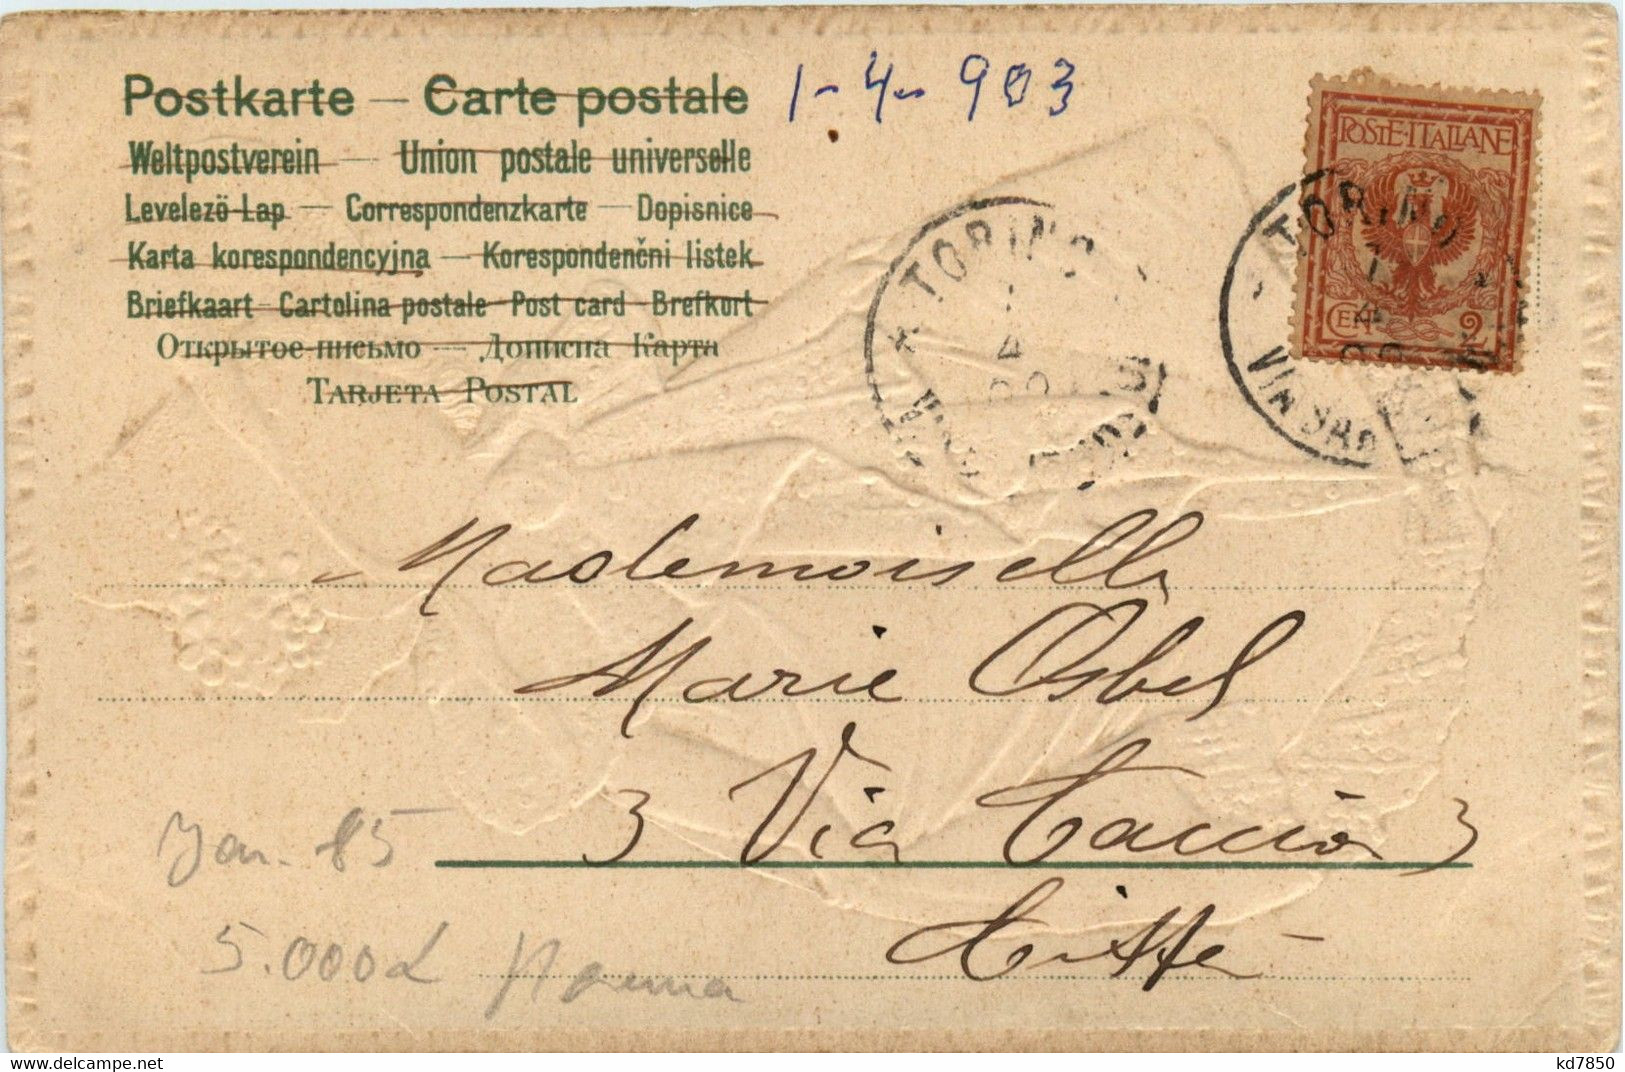 Postkarte — Carte postale 1-4-903
Weltpostverein — Union postale universelle
Levelező-Lap — Correspondenzkarte — Dopisnice
Karta korespondencyjna — Korespondenčni listek
Briefkaart — Cartolina postale — Post card — Brefkort
Открытое письмо — Дописна Карта
TARJETA POSTAL
POSTE·ITALIANE
CENT 2
TORINO
TORINO
Mademoiselle
Marie Osbel
3 Via 3
Città
Jan. 85
5.000£
www.delcampe.net
kd7850